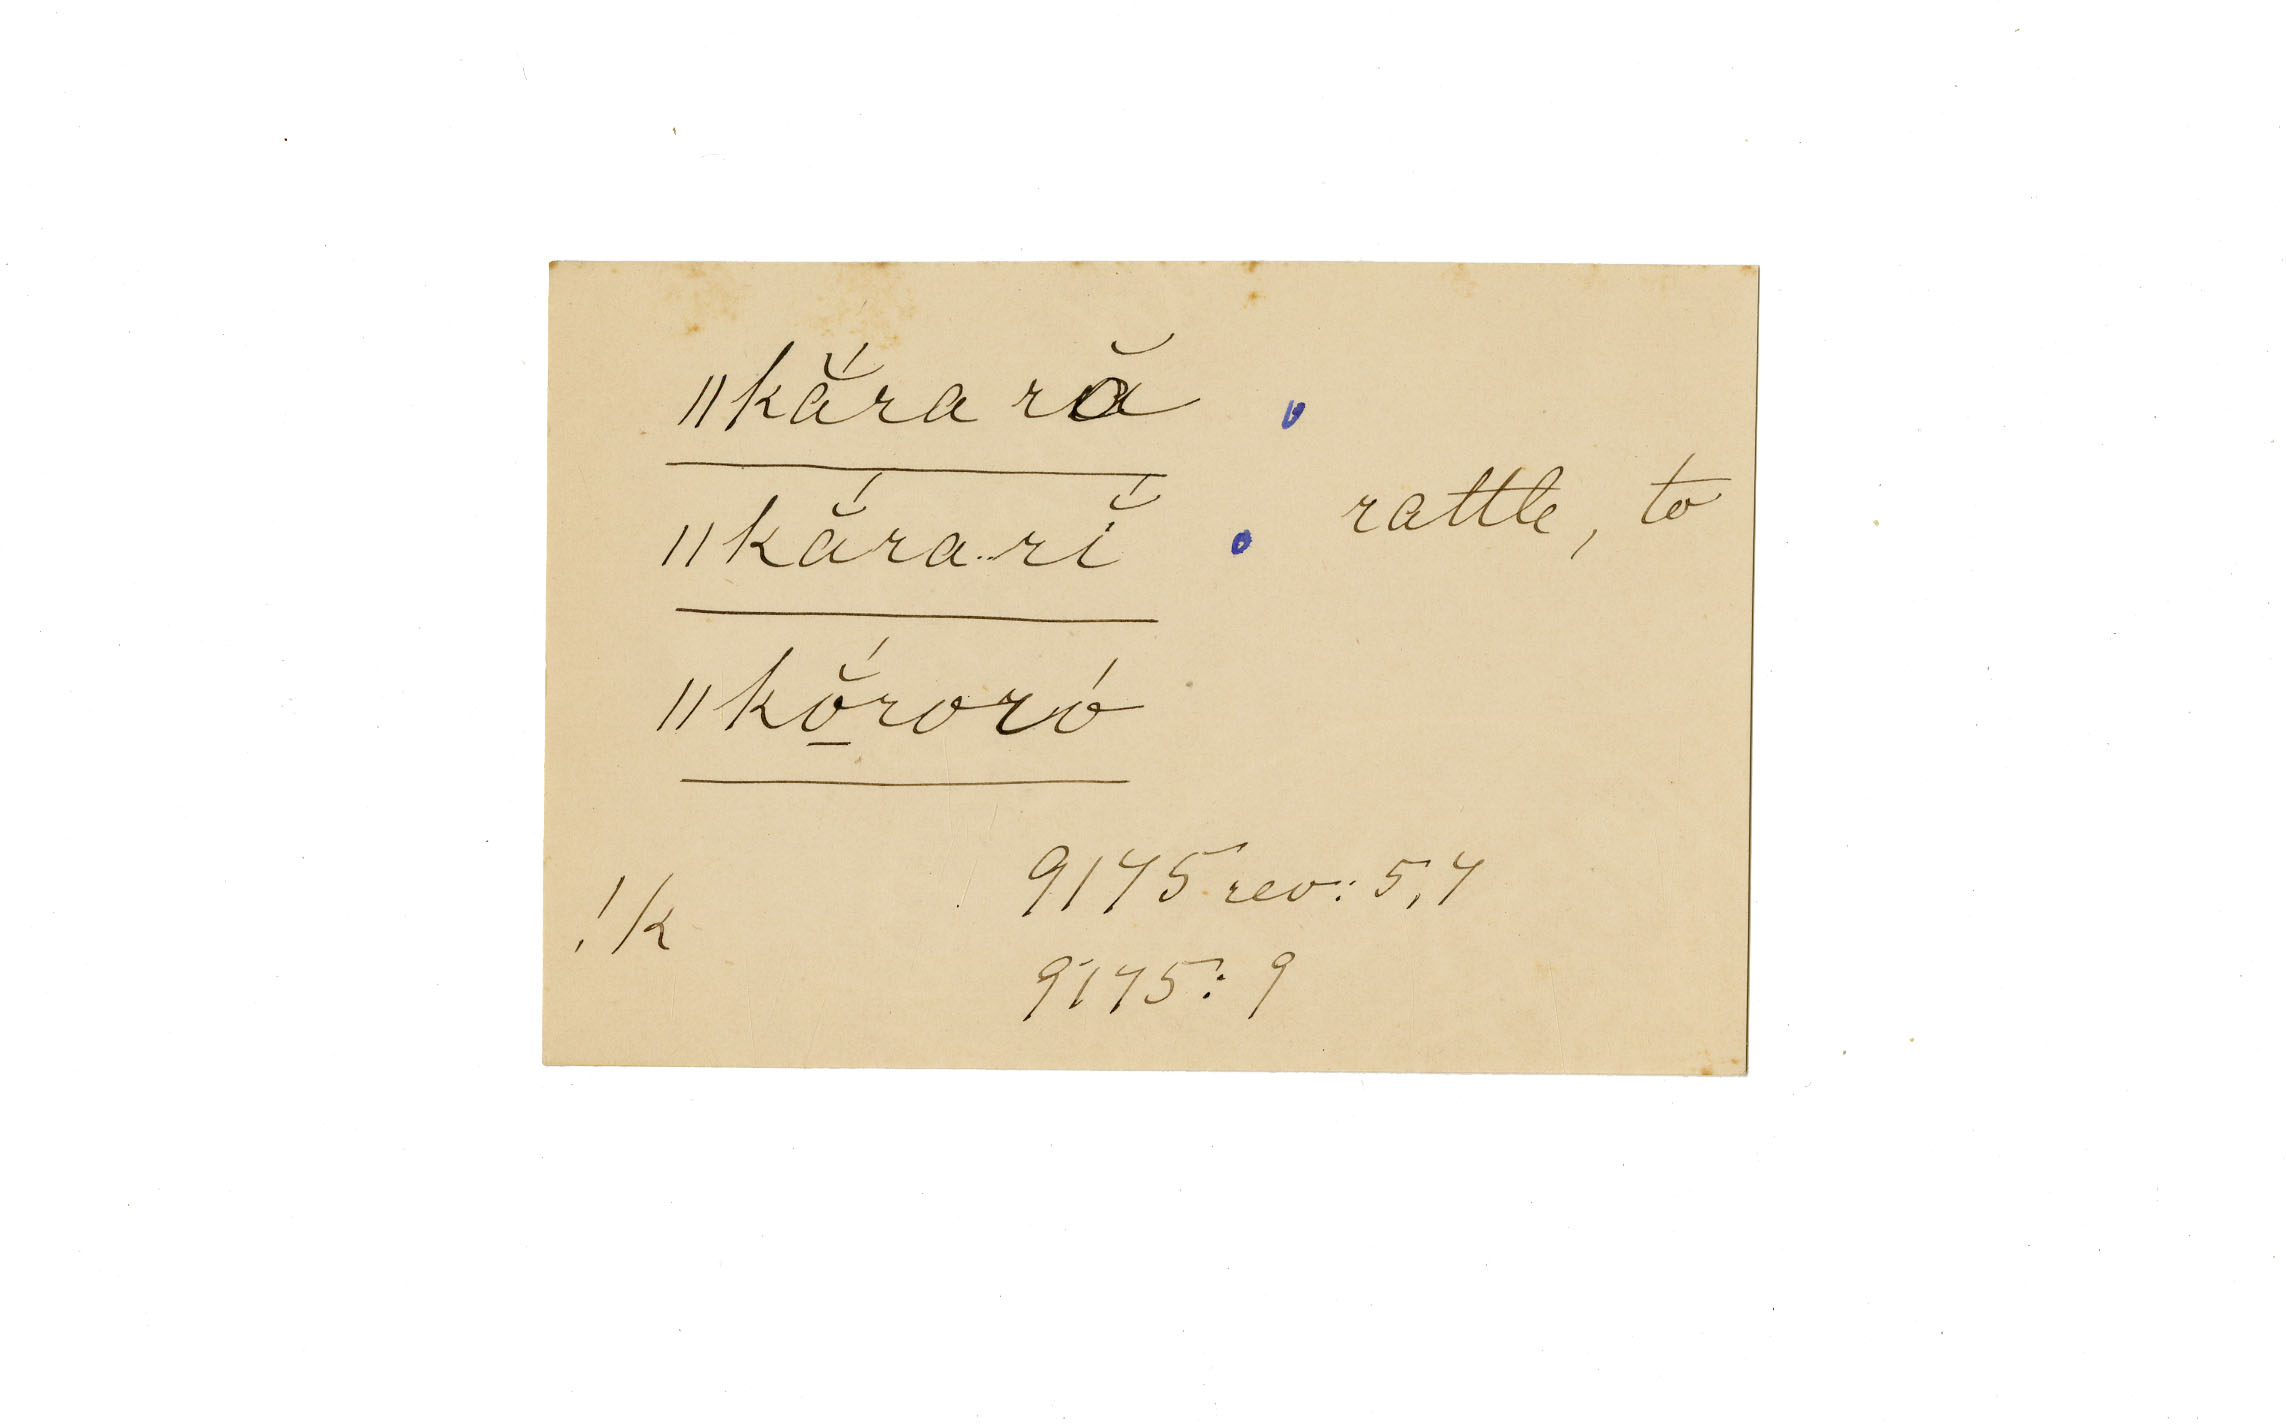 ǁkắrară
ǁkắra-rĭ́
rattle, to
ǁkŏ̱́roró
9175 rev: 5,7
9175: 9
!k